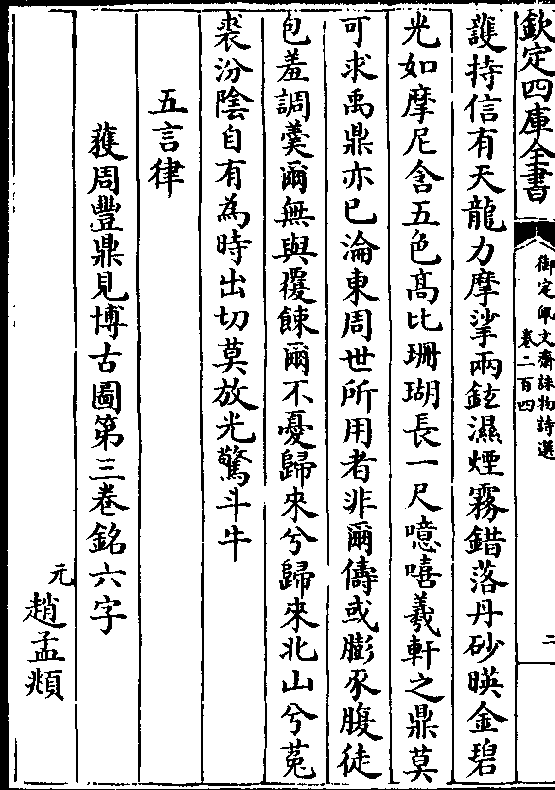 欽定四庫全書
御定佩文齋詠物詩選
卷二百四
二
護持信有天龍力摩挲兩鉉濕煙霧錯落丹砂暎金碧
光如摩尼含五色髙比珊瑚長一尺噫嘻羲軒之鼎莫
可求禹鼎亦已淪東周世所用者非爾儔或膨豕腹徒
包羞調羮爾無與覆餗爾不憂歸來兮歸來北山兮菟
裘汾陰自有為時出切莫放光驚斗牛
五言律
蒦周豐鼎見博古圖第三卷銘六字
元
趙孟頫